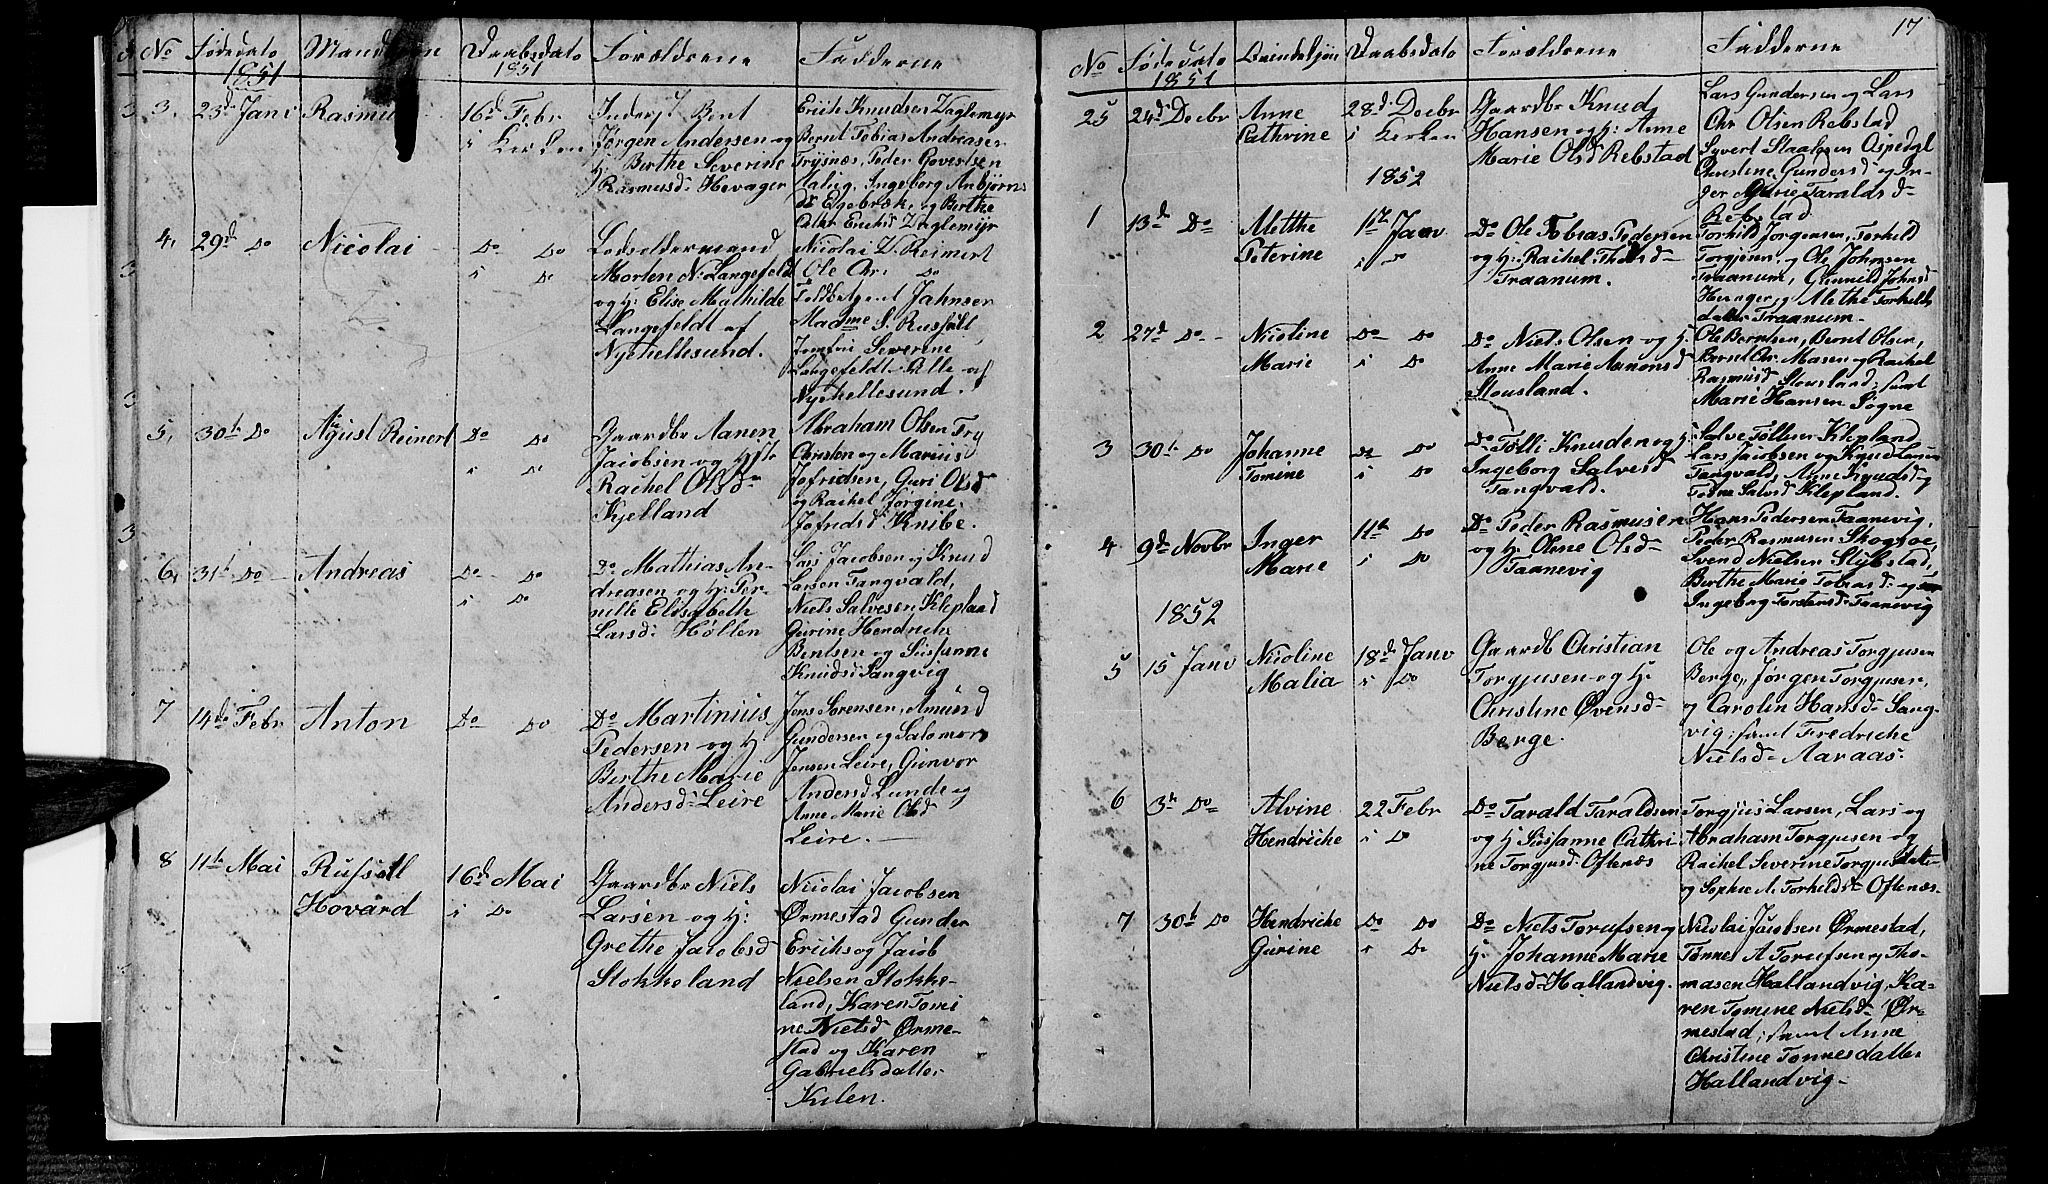 No Fødedato Mandkjøn Daabsdato Forældrene Fadderne
1851 1851
3. 23d Jani Rasmus 16d Febr
i Kirken
Inderst Bent
Jørgen Andersen og
H: Berthe Severine
Rasmusd: Hevager
Erick Knudsen Daglemyr
Bernt Tobias Andreasen
Trysnæs, Peder Rovertsen
Halvig, Ingeborg Anbjørns
dr Egebræk, og Berthe
Cathr Ericksd Daglemyr
4. 29d Do Nicolai Do Do
i Do
Lodsoldermand
Morten N. Langefeldt
og H: Elise Mathilde
Langefeldt af
Nyehellesund.
Nicolai D. Reimert
Ole Chr: Do
Toldbetjent Jahnsen
Madme S. Rusfall
Jomfru Severine
Langefeldt. Alle af
Nyehellesund.
5. 30te Do Agust Reinert Do Do
i Do
Gaardbr Aanen
Jacobsen og H:
Rachel Olsdr
Kjelland
Abraham Olsen Try
Christen og Marius
Jofridsen, Guri Olsd
og Rachel Jørgine
Jofridsd Knibe.
6. 31te Do Andreas Do Do
i Do
Do Mathias An-
dreasen og H: Per-
nille Elisabeth
Larsd: Høllen
Lars Jacobsen og Knud
Larsen Tangvald,
Niels Salvesen Klepland
Gurine Hendricke
Bentsen og Susanne
Knudsd: Langvig
7 14de Febr Anton Do Do
Do Martinius
Pedersen og H
Berthe Marie
Andersd: Leire
Jens Sørensen, Amund
Gundersen og Salomon
Jensen Leire, Gunvor
Andersd Lunde og
Anne Marie Olsd
Leire.
8 11te Mai Rusfell
Hovard
16d Mai
i Do
Gaardbr Niels
Larsen og H:
Grethe Jacobsd
Stokkeland
Nicolai Jacobsen
Ørmestad Gunder
Ericks og Jacob
Nielsen Stokke-
land, Karen Tomi
ne Nielsd Ørme-
stad og Karen
Gabrielsdatter
Kulen.
17
No Fødedato Qvindekjøn Daabsdato Forældrene Fadderne
1851
25 24d Decbr Anne
Cathrine
28d Decbr
i Kirken
1852
Gaardbr Knud
Hansen og H: Anne
Marie Olsd Rebstad
Lars Gundersen og Lars
Chr Olsen Rebstad
Syvert Staalesen Aspedgl
Christine Gundersd og In-
ger Marie Taraldsd
Rebstad
1 13d Do Metthe
Peterine
1ste Janv
i Do
Do Ole Tobias Pedersen
og H: Rachel Thorsd
Traanum.
Torkild Jørgensen, Torkild
Torgjersen, og Ole Johnsen
Traanum, Gunnild Johnsd
og Methe Torkilds
datter Traanum.
2 27d Do Nicoline
Marie
Do Do
i Do
Do Niels Olsen og H:
Anne Marie Amonsd
Stousland.
Ole Berntsen, Bernt Olsen,
Bernt Chr. Masen og Rachel
Rasmusd Stousland; samt
Marie Hansen Søgne
3 30te Do Johanne
Tomine
Do Do
i Do
Do Tolli Knudsen og H:
Ingeborg Salvesd
Tangvald.
Salve Tollisen Klepland
Lars Jacobsen og Knud Larsen
Tangvald, Anne Knudsd og
Tobine Salvsd Klepland.
4 9d Novbr Inger
Marie
11te Do
i Do
Do Peder Rasmusen
og H: Olene Olsd
Taanevig
Hans Pedersen Taanevig,
Peder Rasmusen Skogtoe,
Svend Nielsen Stybstad,
Berthe Marie Tobiasd: og
Ingeborg Torstensd: Taanevig
1852
5 15 Janv Nicoline
Malia
18d Janv
i Do
Gaardb Christian
Torgjusen og H:
Christine Øvensd
Berge.
Ole og Andreas Torgjusen
Berge, Jørgen Torgjusen,
og Carolin Hansd: Lang-
vig; samt Fredriche
Nielsd Aaraas.
6 3te Do Alvine
Hendricke
22 Febr
i Do
Do Tarald Taraldsen
og H: Susanne Cathri
ne Torgjusd: Oftenæs
Torgjus Larsen, Lars og
Abraham Torgjusen og
Rachel Severine Torgjusdatter
og Sophie A. Torkildsd Oftenæs.
7 30te Do Hendricke
Gurine
Do Do
i Do
Do Niels Torufsen og
H: Johanne Marie
Nielsd Hallandvig.
Nicolai Jacobsen Ørmestad,
Tønnes A Torufsen og Tho-
masen Hallandvig, Ka-
ren Tomine Nielsd Ør-
mestad; samt Anne
Christine Tønnesdatter
Hallandvig